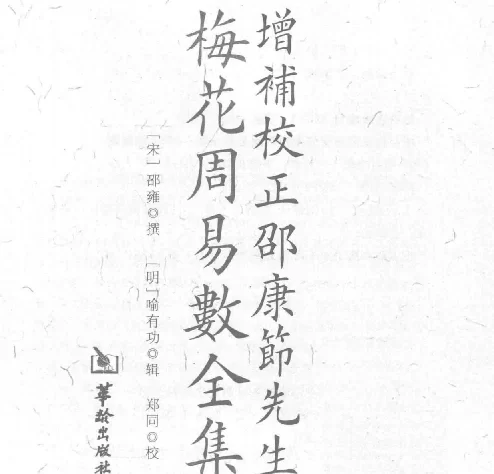 增補校正邵康節先生
梅花周易數全集
［宋］邵雍◎撰　［明］喻有功◎辑　郑同◎校
華齡出版社